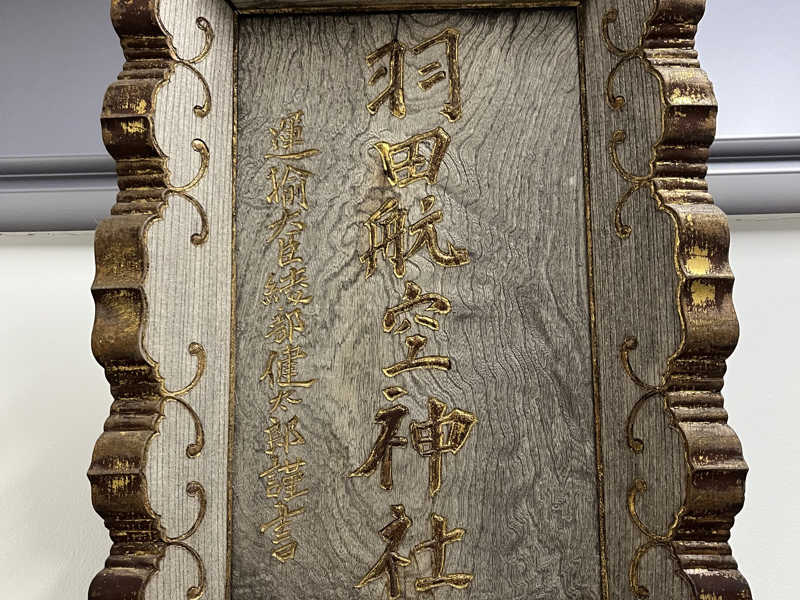 羽田航空神社
運輸大臣綾部健太郎謹書